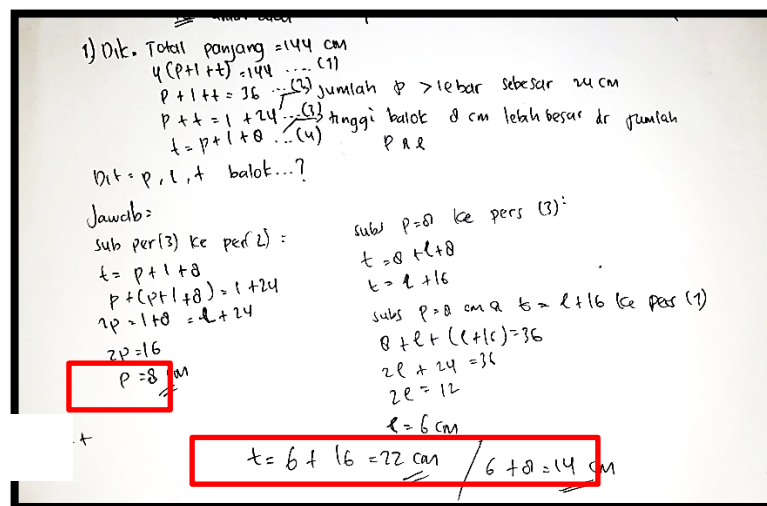 1) Dik. Total panjang = 144 cm
4(p+l+t) = 144 .... (1)
p + l + t = 36 ... (2) jumlah p > lebar sebesar 24 cm
p + t = l + 24 ... (3) tinggi balok 8 cm lebih besar dr jumlah
t = p + l + 8 ... (4) p & l
Dit = p, l, t balok...?
Jawab:
sub per(3) ke per(2) =
t = p + l + 8
p + (p+l+8) = l + 24
2p = l + 8 = l + 24
2p = 16
p = 8 cm
subs p=8 ke pers (3):
t = 8 + l + 8
t = l + 16
subs p=8 cm & t = l + 16 ke pers (1)
8 + l + (l+16) = 36
2l + 24 = 36
2l = 12
l = 6 cm
t = 6 + 16 = 22 cm / 6 + 8 = 14 cm